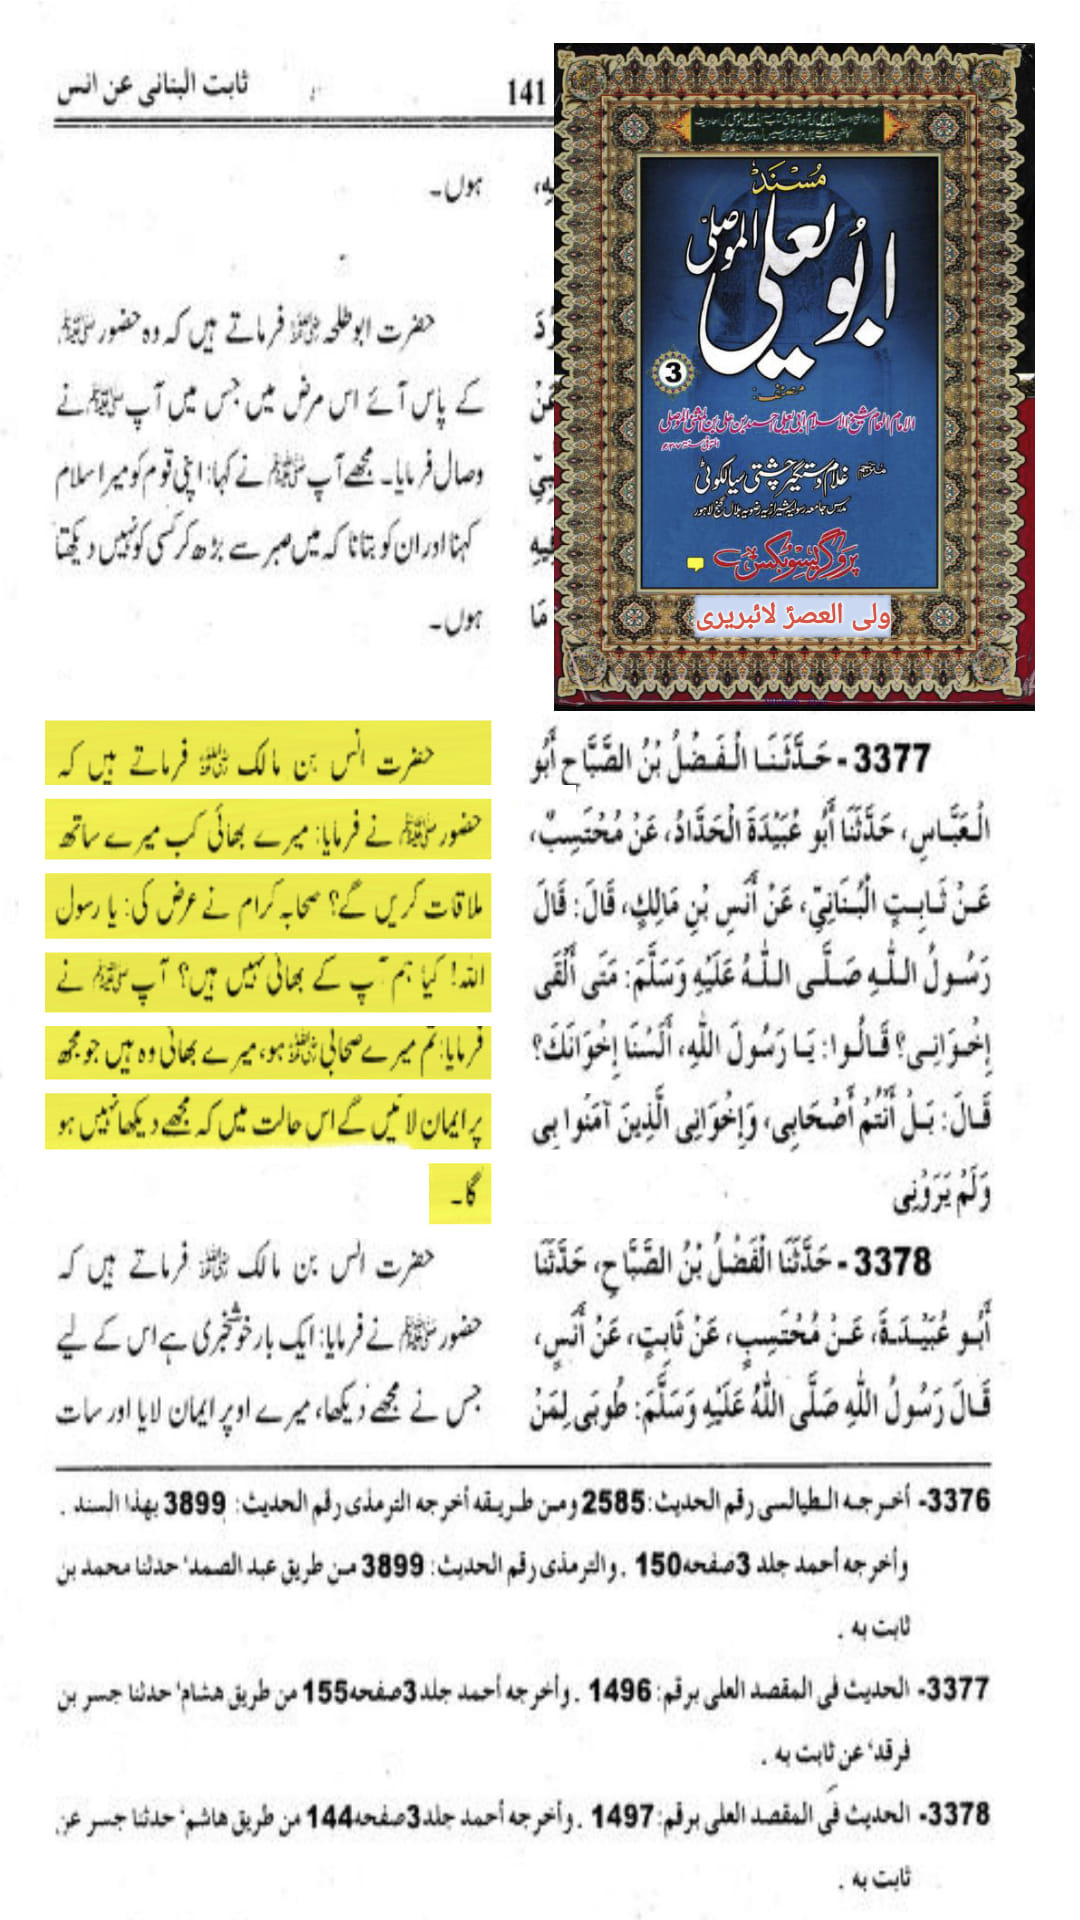 ثابت البنانی عن انس
141
ہوں۔
حضرت ابوطلحہ ؓ فرماتے ہیں کہ وہ حضور ﷺ
کے پاس آئے اس مرض میں جس میں آپ ﷺ نے
وصال فرمایا۔ مجھے آپ ﷺ نے کہا: اپنی قوم کو میرا سلام
کہنا اور ان کو بتانا کہ میں صبر سے بڑھ کر کسی کو نہیں دیکھتا
ہوں۔
مَا
مُسْنَد
ابُو یعلی الموصلی
3
مصنف:
الامام الہمام شیخ الاسلام ابی یعلی احمد بن علی بن المثنی الموصلی
مترجم
غلام دستگیر چشتی سیالکوٹی
مدرس جامعہ رسولیہ شیرازیہ رضویہ بلال گنج لاہور
پروگریسو بکس
ولی العصرؑ لائبریری
حضرت انس بن مالک ؓ فرماتے ہیں کہ
حضور ﷺ نے فرمایا: میرے بھائی کب میرے ساتھ
ملاقات کریں گے؟ صحابہ کرام نے عرض کی: یا رسول
اللہ! کیا ہم آپ کے بھائی نہیں ہیں؟ آپ ﷺ نے
فرمایا: تم میرے صحابی ؓ ہو، میرے بھائی وہ ہیں جو مجھ
پر ایمان لائیں گے اس حالت میں کہ مجھے دیکھا نہیں ہو
گا۔
3377- حَدَّثَنَا الْفَضْلُ بْنُ الصَّبَّاحِ أَبُو
الْعَبَّاسِ، حَدَّثَنَا أَبُو عُبَيْدَةَ الْحَدَّادُ، عَنْ مُحْتَسِبٍ،
عَنْ ثَابِتٍ الْبُنَانِيِّ، عَنْ أَنَسِ بْنِ مَالِكٍ، قَالَ: قَالَ
رَسُولُ اللَّهِ صَلَّى اللَّهُ عَلَيْهِ وَسَلَّمَ: مَتَى أَلْقَى
إِخْوَانِي؟ قَالُوا: يَا رَسُولَ اللَّهِ، أَلَسْنَا إِخْوَانَكَ؟
قَالَ: بَلْ أَنْتُمْ أَصْحَابِي، وَإِخْوَانِي الَّذِينَ آمَنُوا بِي
وَلَمْ يَرَوْنِي
حضرت انس بن مالک ؓ فرماتے ہیں کہ
حضور ﷺ نے فرمایا: ایک بار خوشخبری ہے اس کے لیے
جس نے مجھے دیکھا، میرے اوپر ایمان لایا اور سات
3378- حَدَّثَنَا الْفَضْلُ بْنُ الصَّبَّاحِ، حَدَّثَنَا
أَبُو عُبَيْدَةَ، عَنْ مُحْتَسِبٍ، عَنْ ثَابِتٍ، عَنْ أَنَسٍ،
قَالَ رَسُولُ اللَّهِ صَلَّى اللَّهُ عَلَيْهِ وَسَلَّمَ: طُوبَى لِمَنْ
3376- أخرجه الطيالسى رقم الحديث: 2585 ومن طريقه أخرجه الترمذى رقم الحديث: 3899 بهذا السند .
وأخرجه أحمد جلد 3صفحه150 . والترمذى رقم الحديث: 3899 من طريق عبد الصمد' حدثنا محمد بن
ثابت به .
3377- الحديث فى المقصد العلى برقم: 1496 . وأخرجه أحمد جلد 3صفحه155 من طريق هشام' حدثنا جسر بن
فرقد' عن ثابت به .
3378- الحديث فى المقصد العلى برقم: 1497 . وأخرجه أحمد جلد 3صفحه144 من طريق هاشم' حدثنا جسر عن
ثابت به .